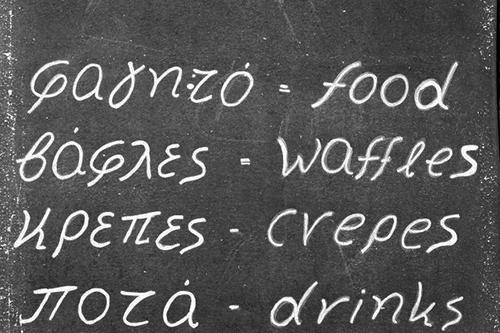 φαγητό = food
βάφλες = waffles
κρεπες - crepes
ποτά - drinks